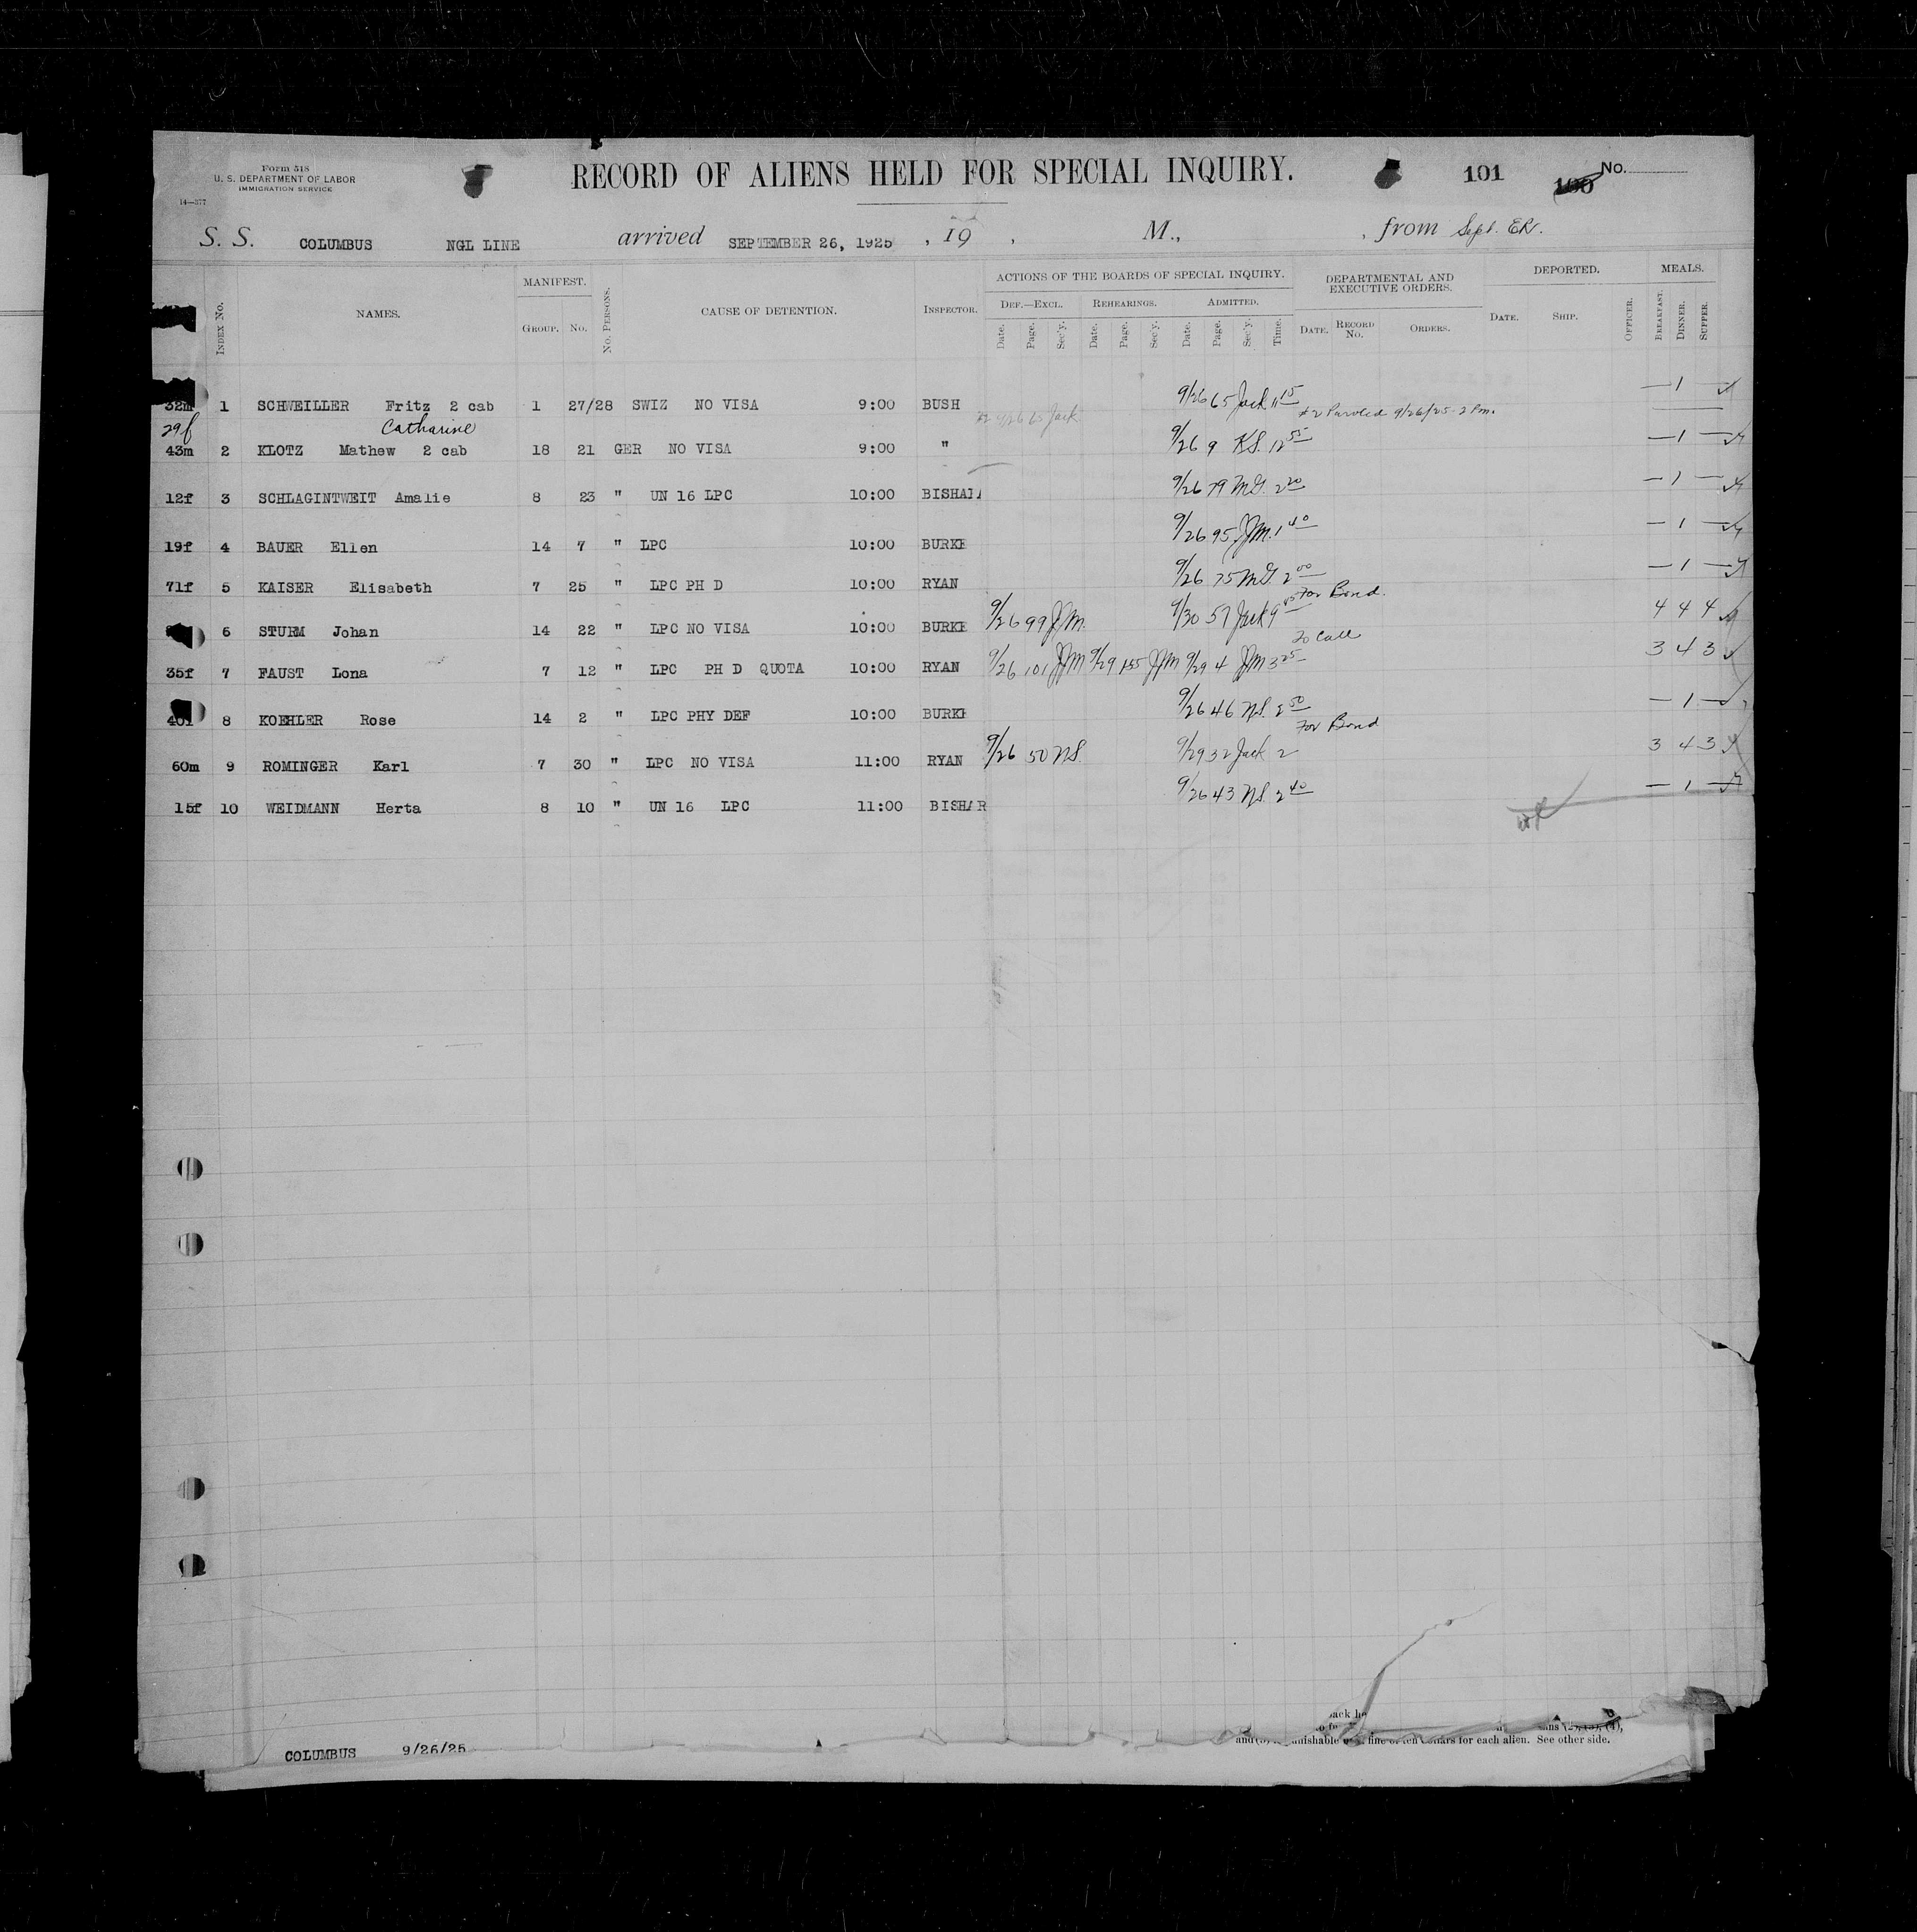 Form 518
U. S. DEPARTMENT OF LABOR
IMMIGRATION SERVICE
14—377
RECORD OF ALIENS HELD FOR SPECIAL INQUIRY.
101
100 No.
S. S. COLUMBUS NGL LINE arrived SEPTEMBER 26, 1925 , 19 , M., , from Sept. ER.
INDEX NO. NAMES. MANIFEST. GROUP. NO. NO. PERSONS. CAUSE OF DETENTION. INSPECTOR. ACTIONS OF THE BOARDS OF SPECIAL INQUIRY. DEF.—EXCL. REHEARINGS. ADMITTED. DEPARTMENTAL AND EXECUTIVE ORDERS. DEPORTED. MEALS.
Date. Page. Sec'y. Date. Page. Sec'y. Date. Page. Sec'y. Time. DATE. RECORD NO. ORDERS. DATE. SHIP. OFFICER. BREAKFAST. DINNER. SUPPER.
32m 1 SCHWEILLER Fritz 2 cab 1 27/28 SWIZ NO VISA 9:00 BUSH 9/26 65 Jack 9/26 65 Jack 11 15 #2 Paroled 9/26/25 - 2 Pm. — 1 —
29f Catharine
43m 2 KLOTZ Mathew 2 cab 18 21 GER NO VISA 9:00 " 9/26 9 KS. 12 55 — 1 —
12f 3 SCHLAGINTWEIT Amalie 8 23 " UN 16 LPC 10:00 BISHAR 9/26 79 MG. 2 20 — 1 —
19f 4 BAUER Ellen 14 7 " LPC 10:00 BURKE 9/26 95 JJM. 1 40 — 1 —
71f 5 KAISER Elisabeth 7 25 " LPC PH D 10:00 RYAN 9/26 75 MG. 2 00 — 1 —
6 STURM Johan 14 22 " LPC NO VISA 10:00 BURKE 9/26 99 JJM. 9/30 57 Jack 9 45 For Bond. 4 4 4
35f 7 FAUST Lona 7 12 " LPC PH D QUOTA 10:00 RYAN 9/26 101 JJM 9/29 155 JJM 9/29 4 JJM 3 25 To Call 3 4 3
40f 8 KOEHLER Rose 14 2 " LPC PHY DEF 10:00 BURKE 9/26 46 NS. 2 50 — 1 —
60m 9 ROMINGER Karl 7 30 " LPC NO VISA 11:00 RYAN 9/26 50 NS. 9/29 32 Jack 2 For Bond 3 4 3
15f 10 WEIDMANN Herta 8 10 " UN 16 LPC 11:00 BISHAR 9/26 43 NS. 2 40 — 1 —
for each alien. See other side.
COLUMBUS 9/26/25